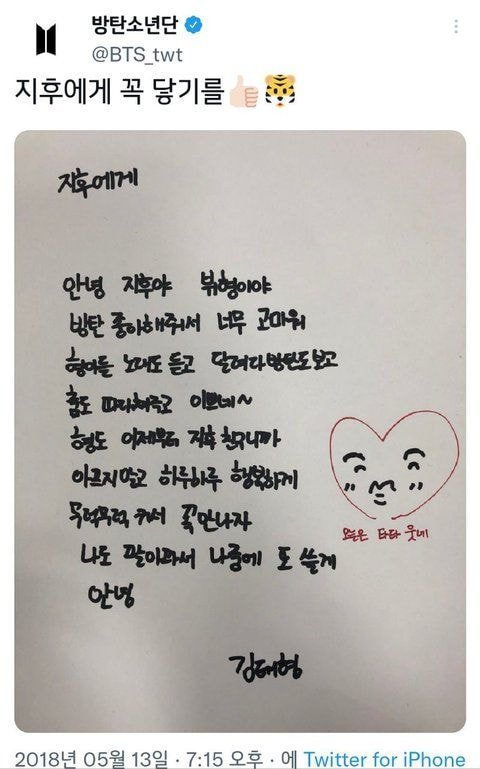 방탄소년단
@BTS_twt
지후에게 꼭 닿기를👍🏻🐯
지후에게
안녕 지후야 뷔형이야
방탄 좋아해줘서 너무 고마워
형아들 노래도 듣고 달려라방탄도보고
춤도 따라해주고 이쁘네~
형도 이제부터 지후 친구니까
아프지않고 하루하루 행복하게
무럭무럭 커서 꼭만나자
나도 팔아파서 나중에 또 쓸게
안녕
오늘은 타타 웃네
김태형
2018년 05월 13일 · 7:15 오후 · 에 Twitter for iPhone